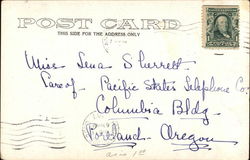 POST CARD
THIS SIDE FOR THE ADDRESS ONLY
Miss Lena Sherrett
Care of Pacific States Telephone Co.
Columbia Bldg
Portland Oregon